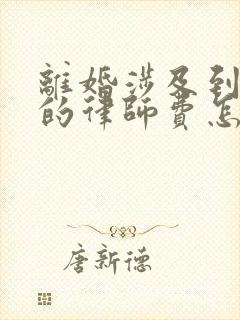 離婚涉及到
的律師費怎
唐新德